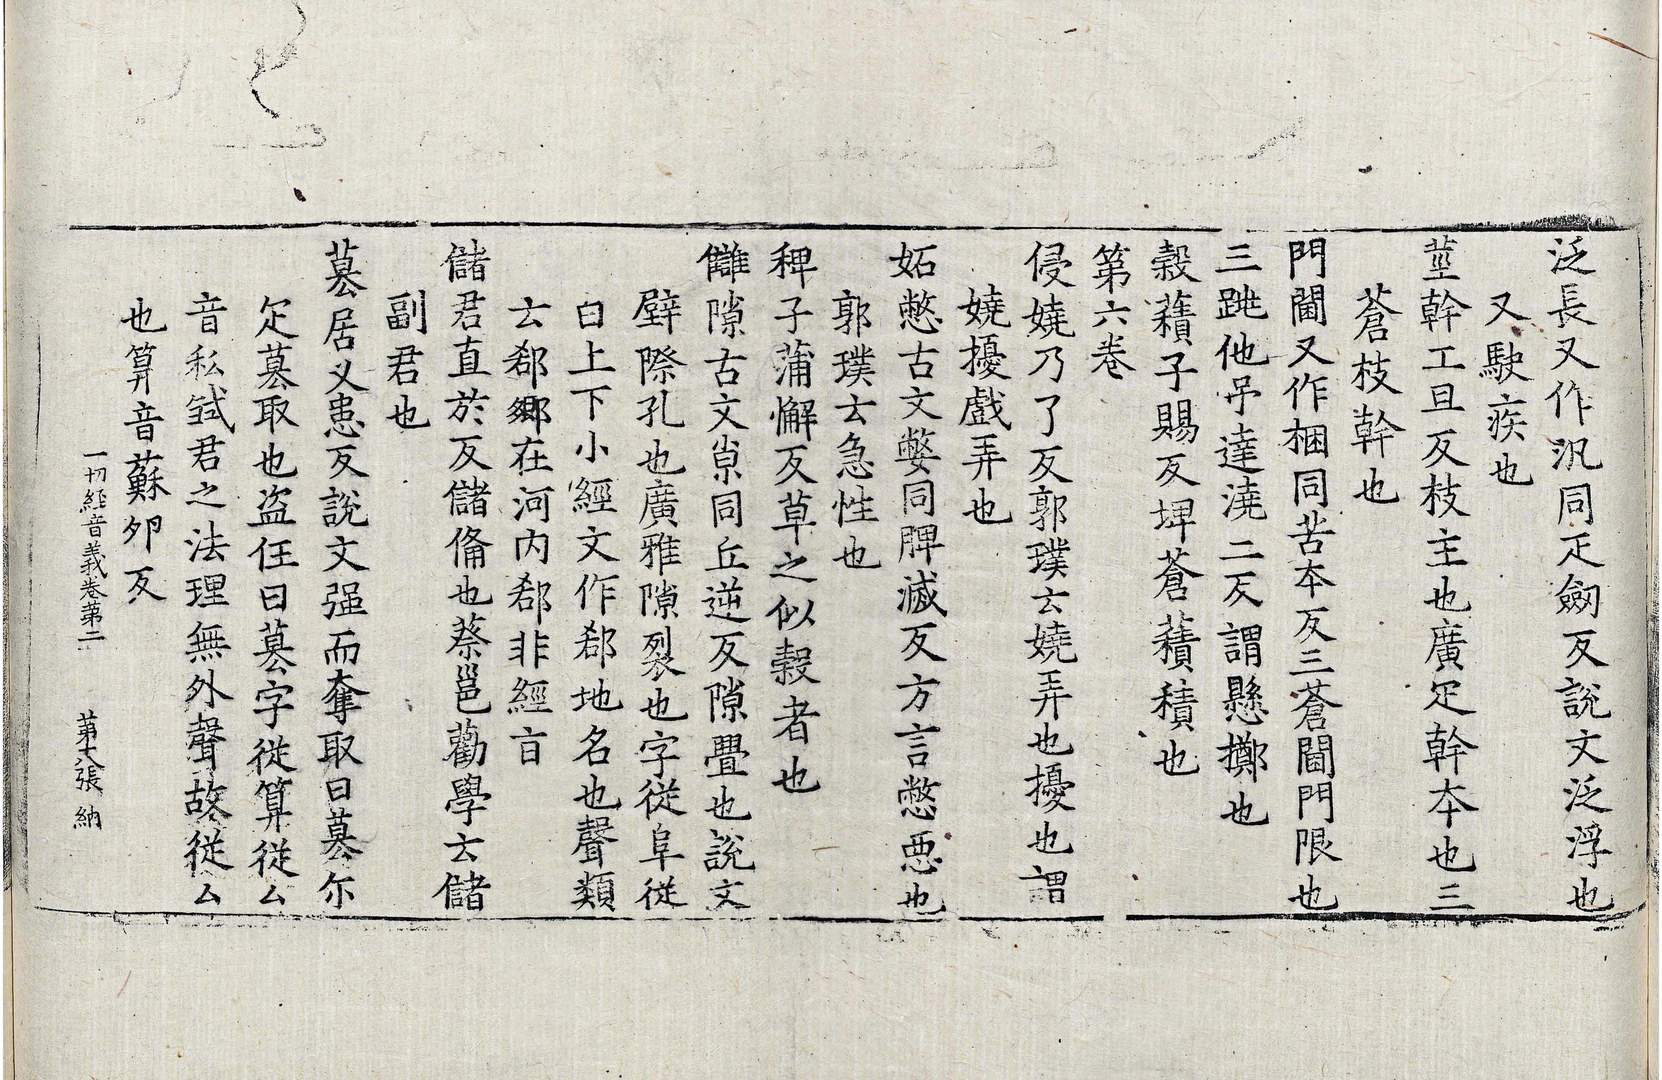 泛長又作汎同疋劒反說文泛浮也
又駛疾也
莖幹工旦反枝主也廣疋幹本也三
蒼枝幹也
門閫又作梱同苦本反三蒼閫門限也
三跳他吊達澆二反謂懸擲也
穀𧂐子賜反埤蒼𧂐積也
第六卷
侵嬈乃了反郭璞云嬈弄也擾也謂
嬈擾戲弄也
妬憋古文嫳同脾滅反方言憋惡也
郭璞云急性也
稗子蒲懈反草之似穀者也
讎隙古文𡭴同丘逆反隙舋也說文
壁際孔也廣雅隙裂也字從阜從
白上下小經文作郄地名也聲類
云郄鄉在河內郄非經言
儲君直於反儲俻也蔡邕勸學云儲
副君也
墓居义患反說文强而奪取曰墓尓
疋墓取也盜任曰墓字從算從厶
音私弒君之法理無外聲故從厶
也算音蘇夘反
一切經音義卷第二　第十八張　納